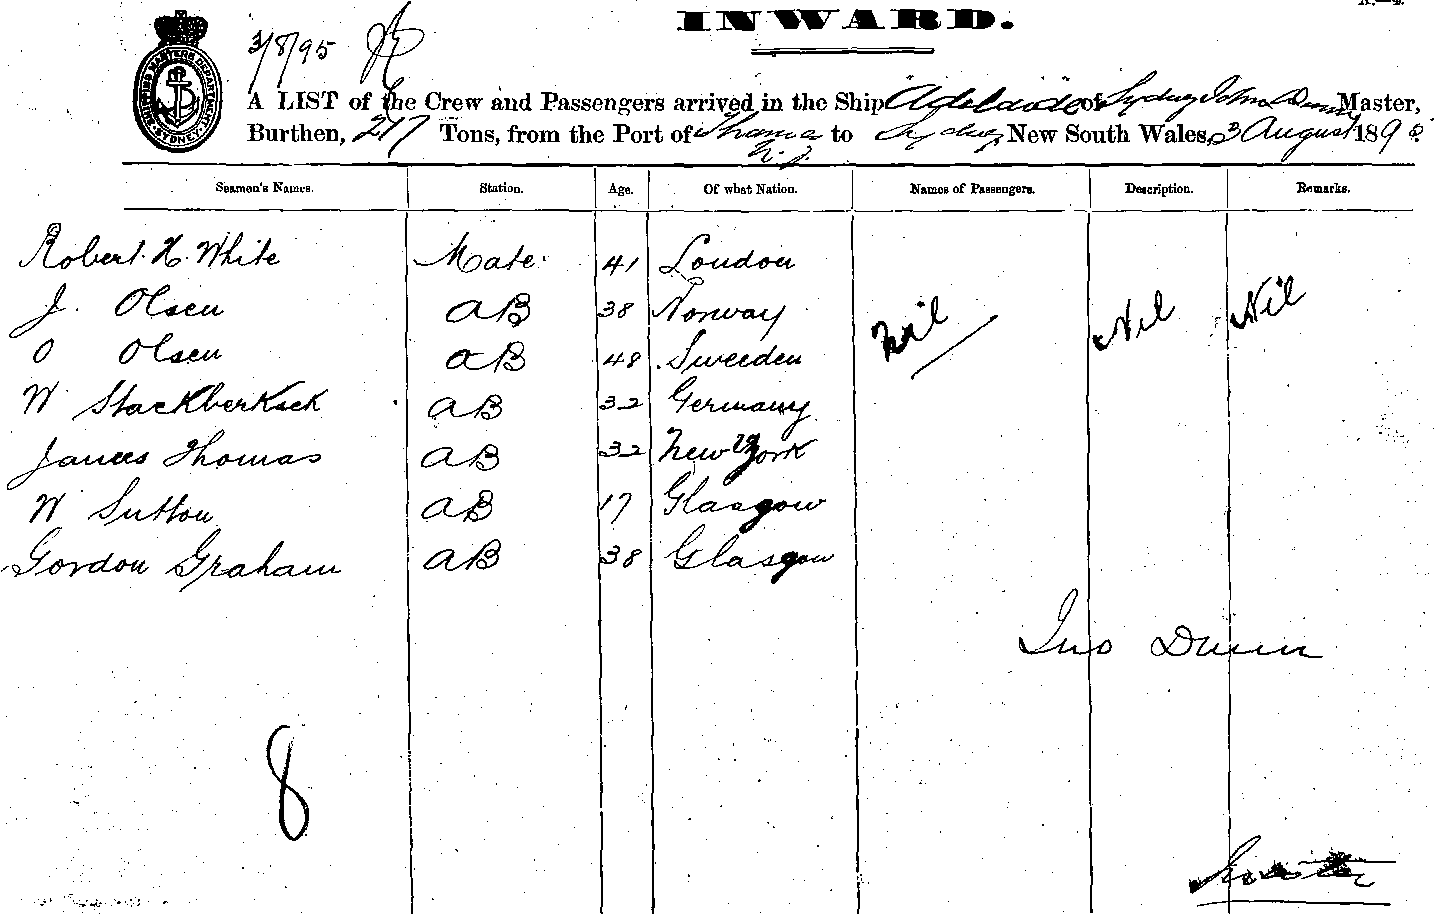 INWARD.
3/8/95
SHIPPING MASTERS DEPARTMENT SYDNEY
A LIST of the Crew and Passengers arrived in the Ship "Adelaide" of Sydney John Dunn Master,
Burthen, 217 Tons, from the Port of to Sydney New South Wales, 3 August 189
Seamen's Names. Station. Age. Of what Nation. Names of Passengers. Description. Remarks.
Robert H. White Mate 41 London
J. Olsen AB 38 Norway Nil Nil Nil
O Olsen AB 48 Sweeden
W Stackberkack AB 32 Germany
James Thomas AB 32 New York
W Sutton AB 17 Glasgow
Gordon Graham AB 38 Glasgow
Jno Dunn
8